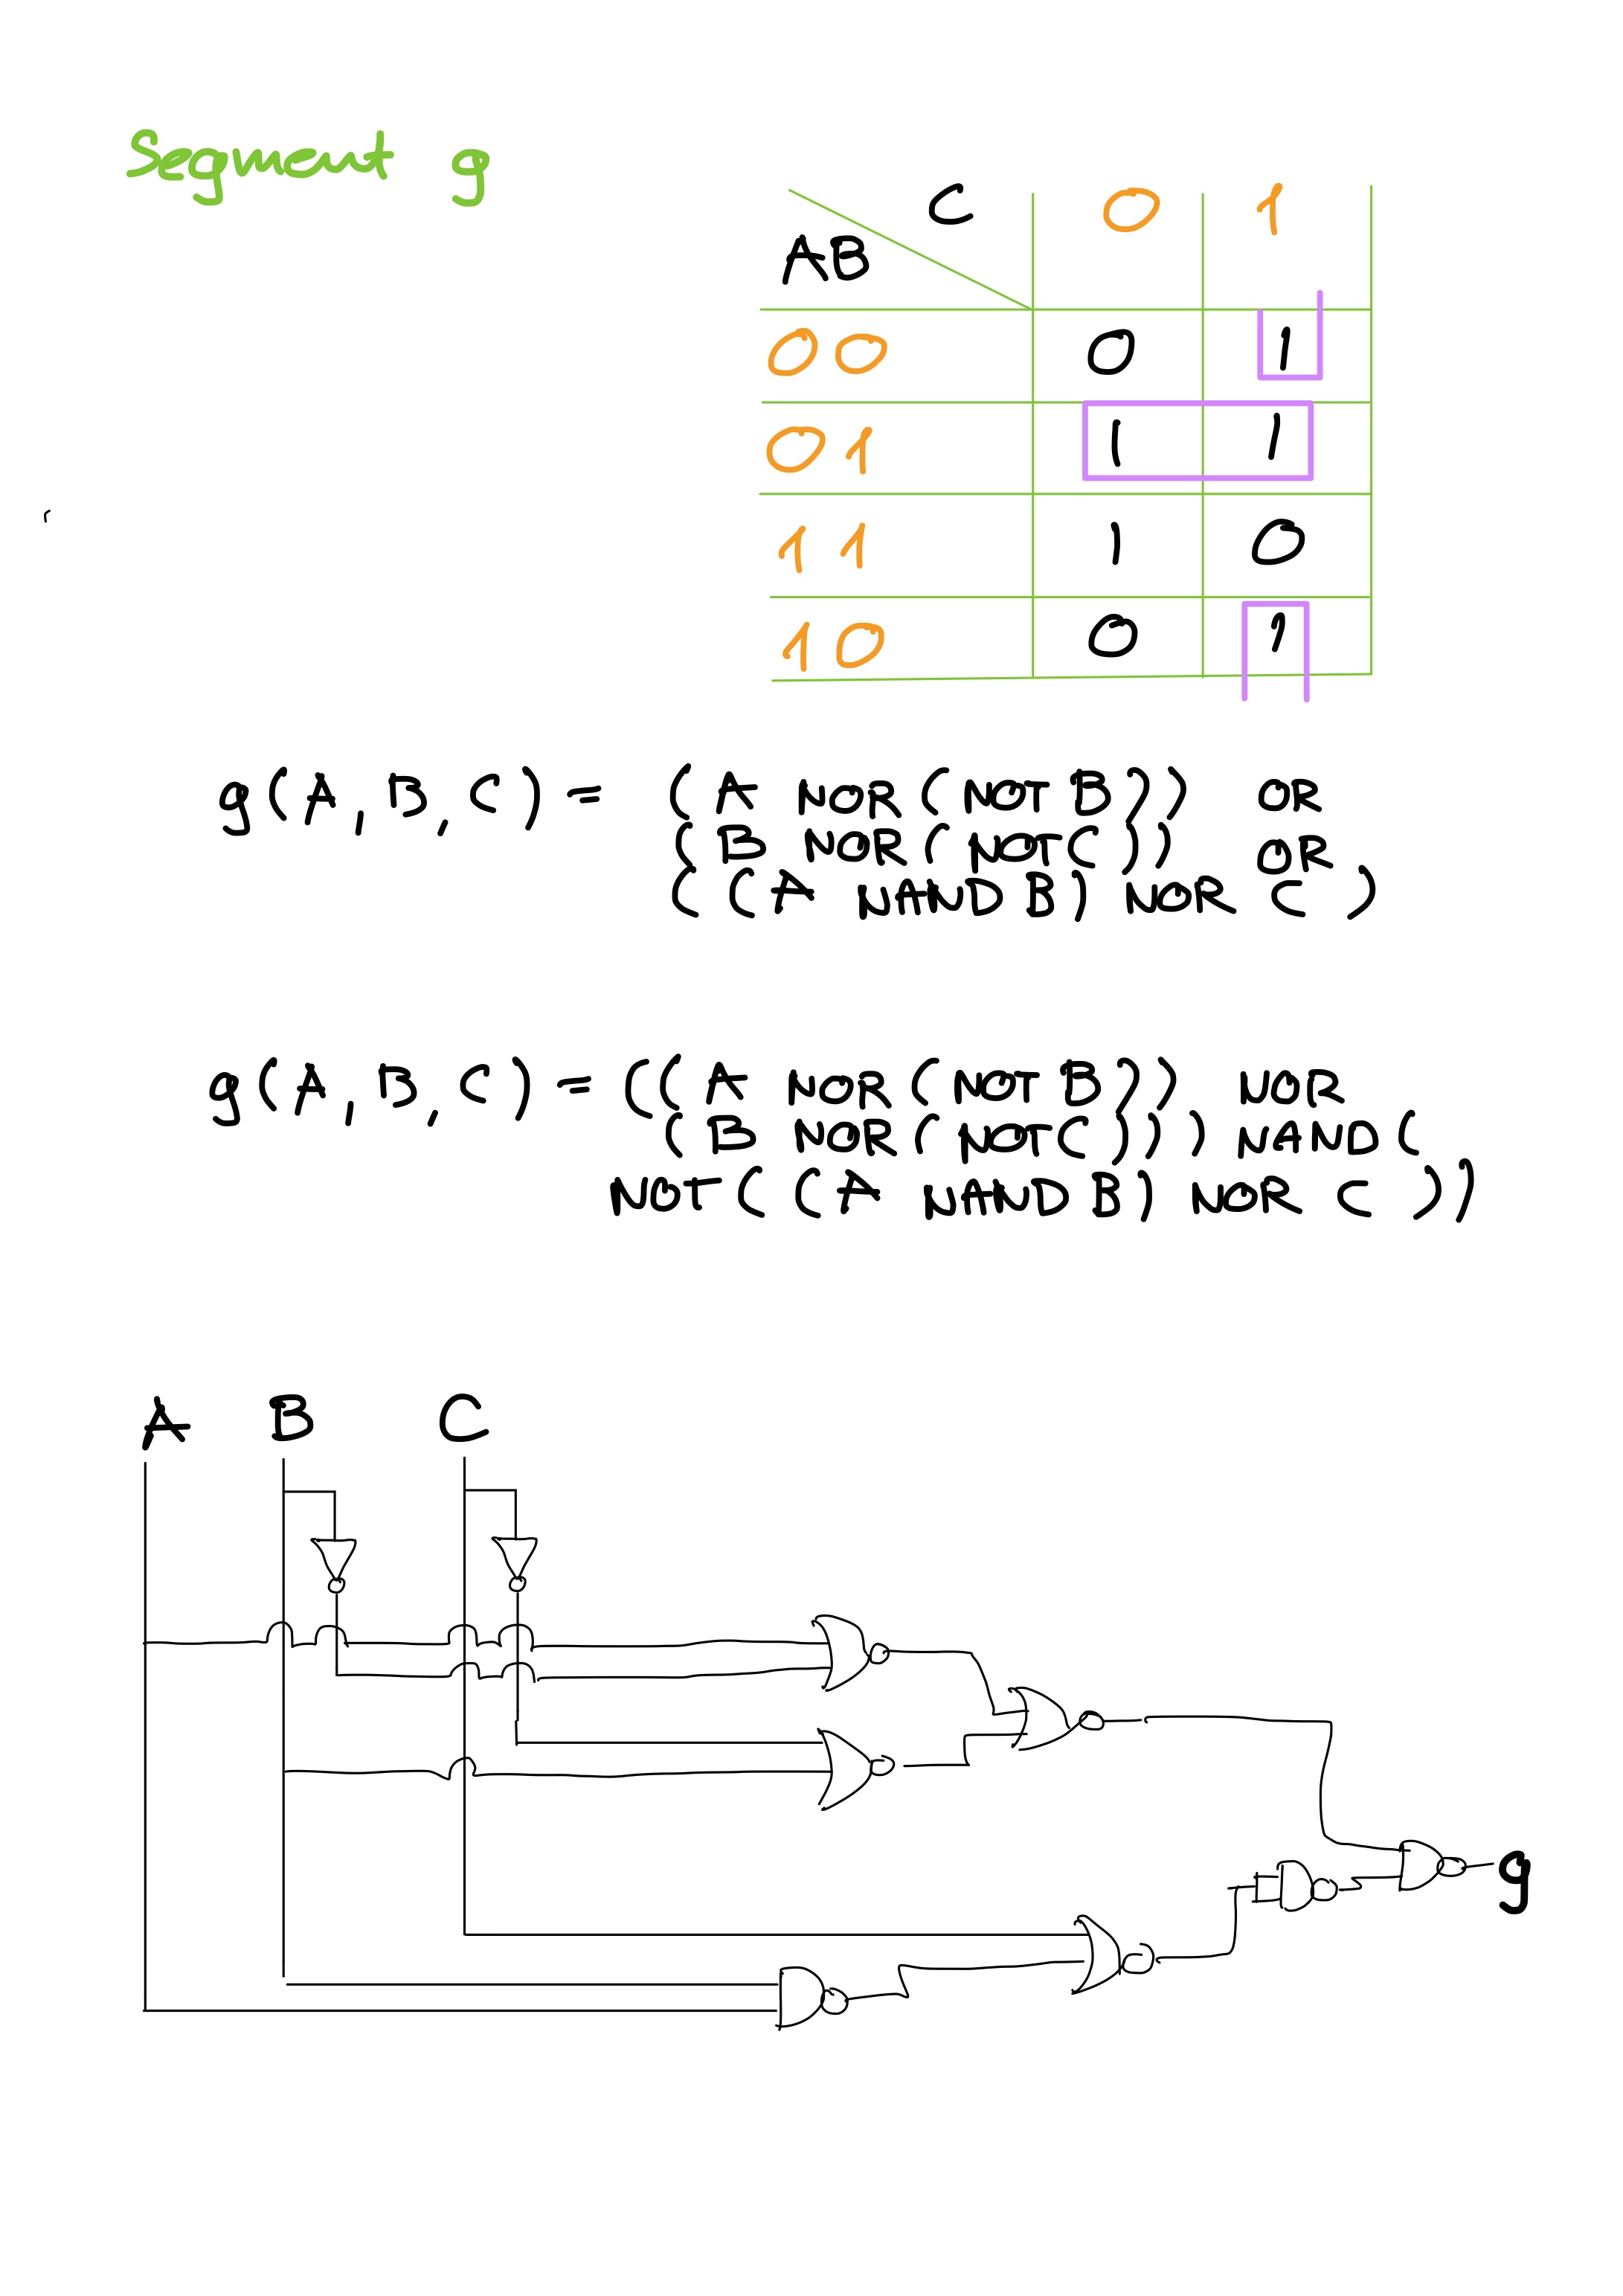 Segment g
C 0 1
AB
00 0 1
01 1 1
11 1 0
10 0 1
g(A,B,C) = (A NOR(NOT B)) OR
(B NOR(NOTC)) OR
((A NAND B) NOR C)
g(A,B,C) = ((A NOR(NOT B)) NOR
(B NOR(NOTC))) NAND(
NOT((A NAND B) NOR C))
A B C
g